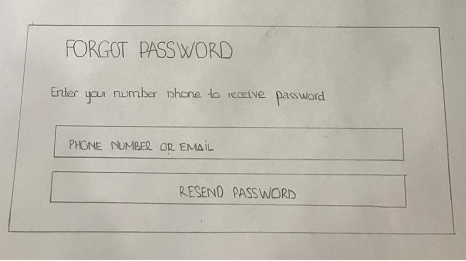 FORGOT PASSWORD
Enter your number phone to receive password
PHONE NUMBER OR EMAIL
RESEND PASSWORD